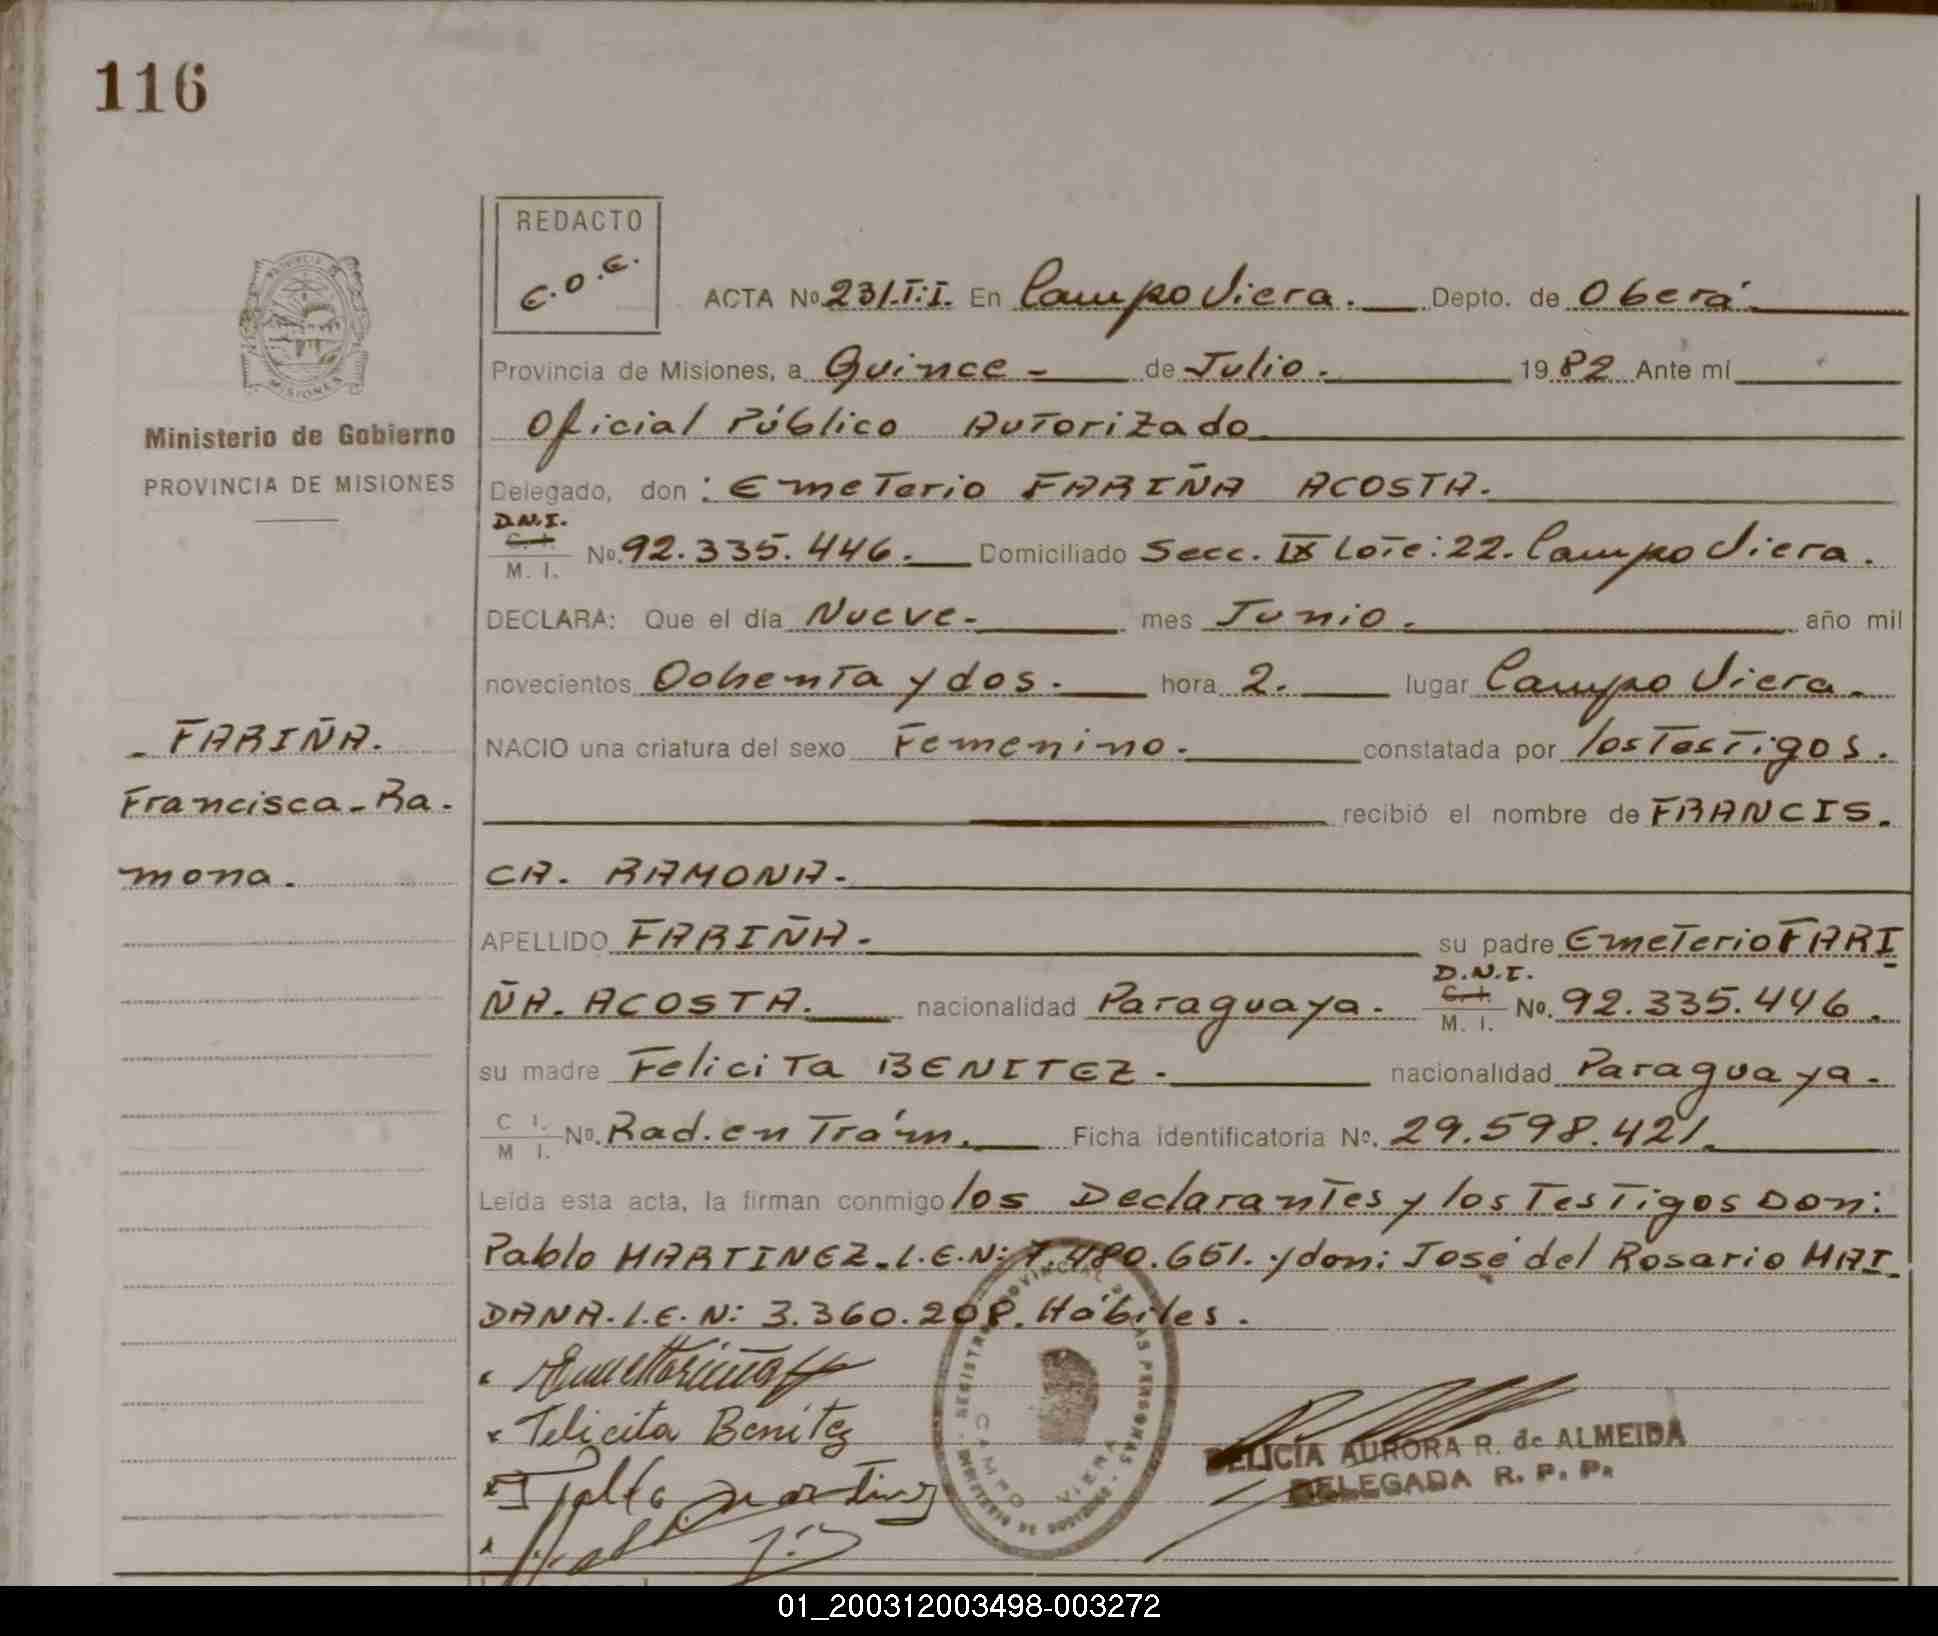 116
REDACTO
C.O.E.
ACTA Nº 231.T:I. En Campo Viera. Depto. de Oberá
Provincia de Misiones, a Quince - de Julio. 1982 Ante mí
Oficial Público Autorizado
Ministerio de Gobierno
PROVINCIA DE MISIONES
Delegado, don: Emeterio FARIÑA ACOSTA.
D.N.I.
C. I.
M. I.
Nº 92.335.446. Domiciliado Secc. IX Lote: 22. Campo Viera.
DECLARA: Que el día Nueve.- mes Junio. año mil
novecientos Ochenta y dos. hora 2. lugar Campo Viera.
- FARIÑA.
NACIO una criatura del sexo Femenino. constatada por los Testigos.
Francisca-Ra.
recibió el nombre de FRANCIS.
mona.
CA. RAMONA.
APELLIDO FARIÑA. su padre Emeterio FARI
ÑA. ACOSTA. nacionalidad Paraguaya. D.N.I. C. I. M. I. Nº. 92.335.446.
su madre Felicita BENITEZ. nacionalidad Paraguaya.
C I. M I. Nº. Rad. en Trám. Ficha identificatoria Nº. 29.598.421.
Leída esta acta, la firman conmigo los Declarantes y los Testigos Don:
Pablo MARTINEZ. L.E.N: 7.480.651. y don: José del Rosario MAI
DANA. L.E.N: 3.360.208. Hábiles.
Felicita Benitez
Pablo Martinez
REGISTRO PROVINCIAL DE LAS PERSONAS
CAMPO VIERA
MINISTERIO DE GOBIERNO
DELICIA AURORA R. de ALMEIDA
DELEGADA R. P. P.
01_200312003498-003272